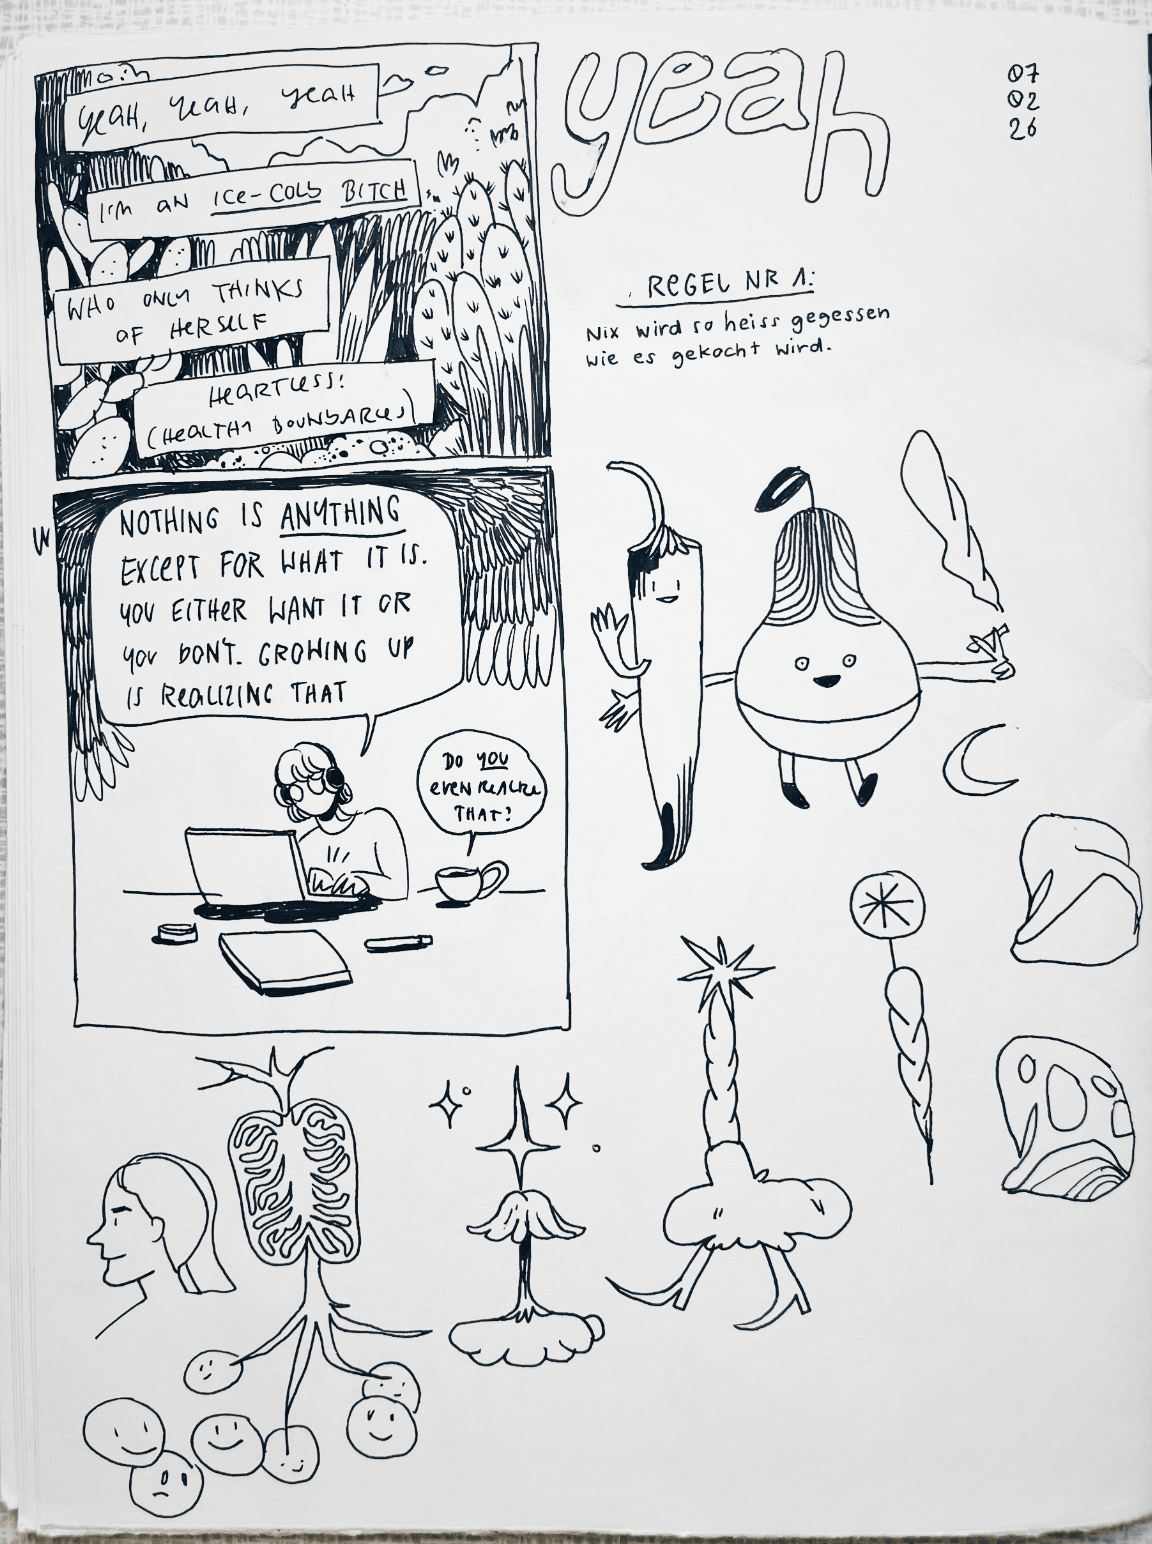 moin
YEAH, YEAH, YEAH
I'M AN ICE-COLD BITCH
WHO ONLY THINKS
OF HERSELF
HEARTLESS!
(HEALTHY BOUNDARIES)
NOTHING IS ANYTHING
EXCEPT FOR WHAT IT IS.
YOU EITHER WANT IT OR
YOU DON'T. GROWING UP
IS REALIZING THAT
DO YOU
EVEN REALIZE
THAT?
yeah
07
02
26
REGEL NR 1:
Nix wird so heiss gegessen
wie es gekocht wird.